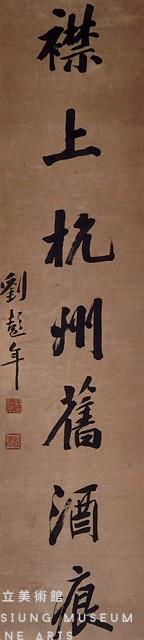 襟上杭州舊酒痕
劉彭年
立美術館
SIUNG MUSEUM
NE ARTS